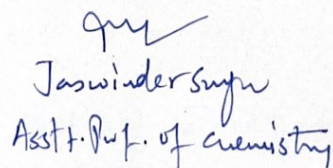 Jaswinder Singh
Asstt. Prof. of Chemistry